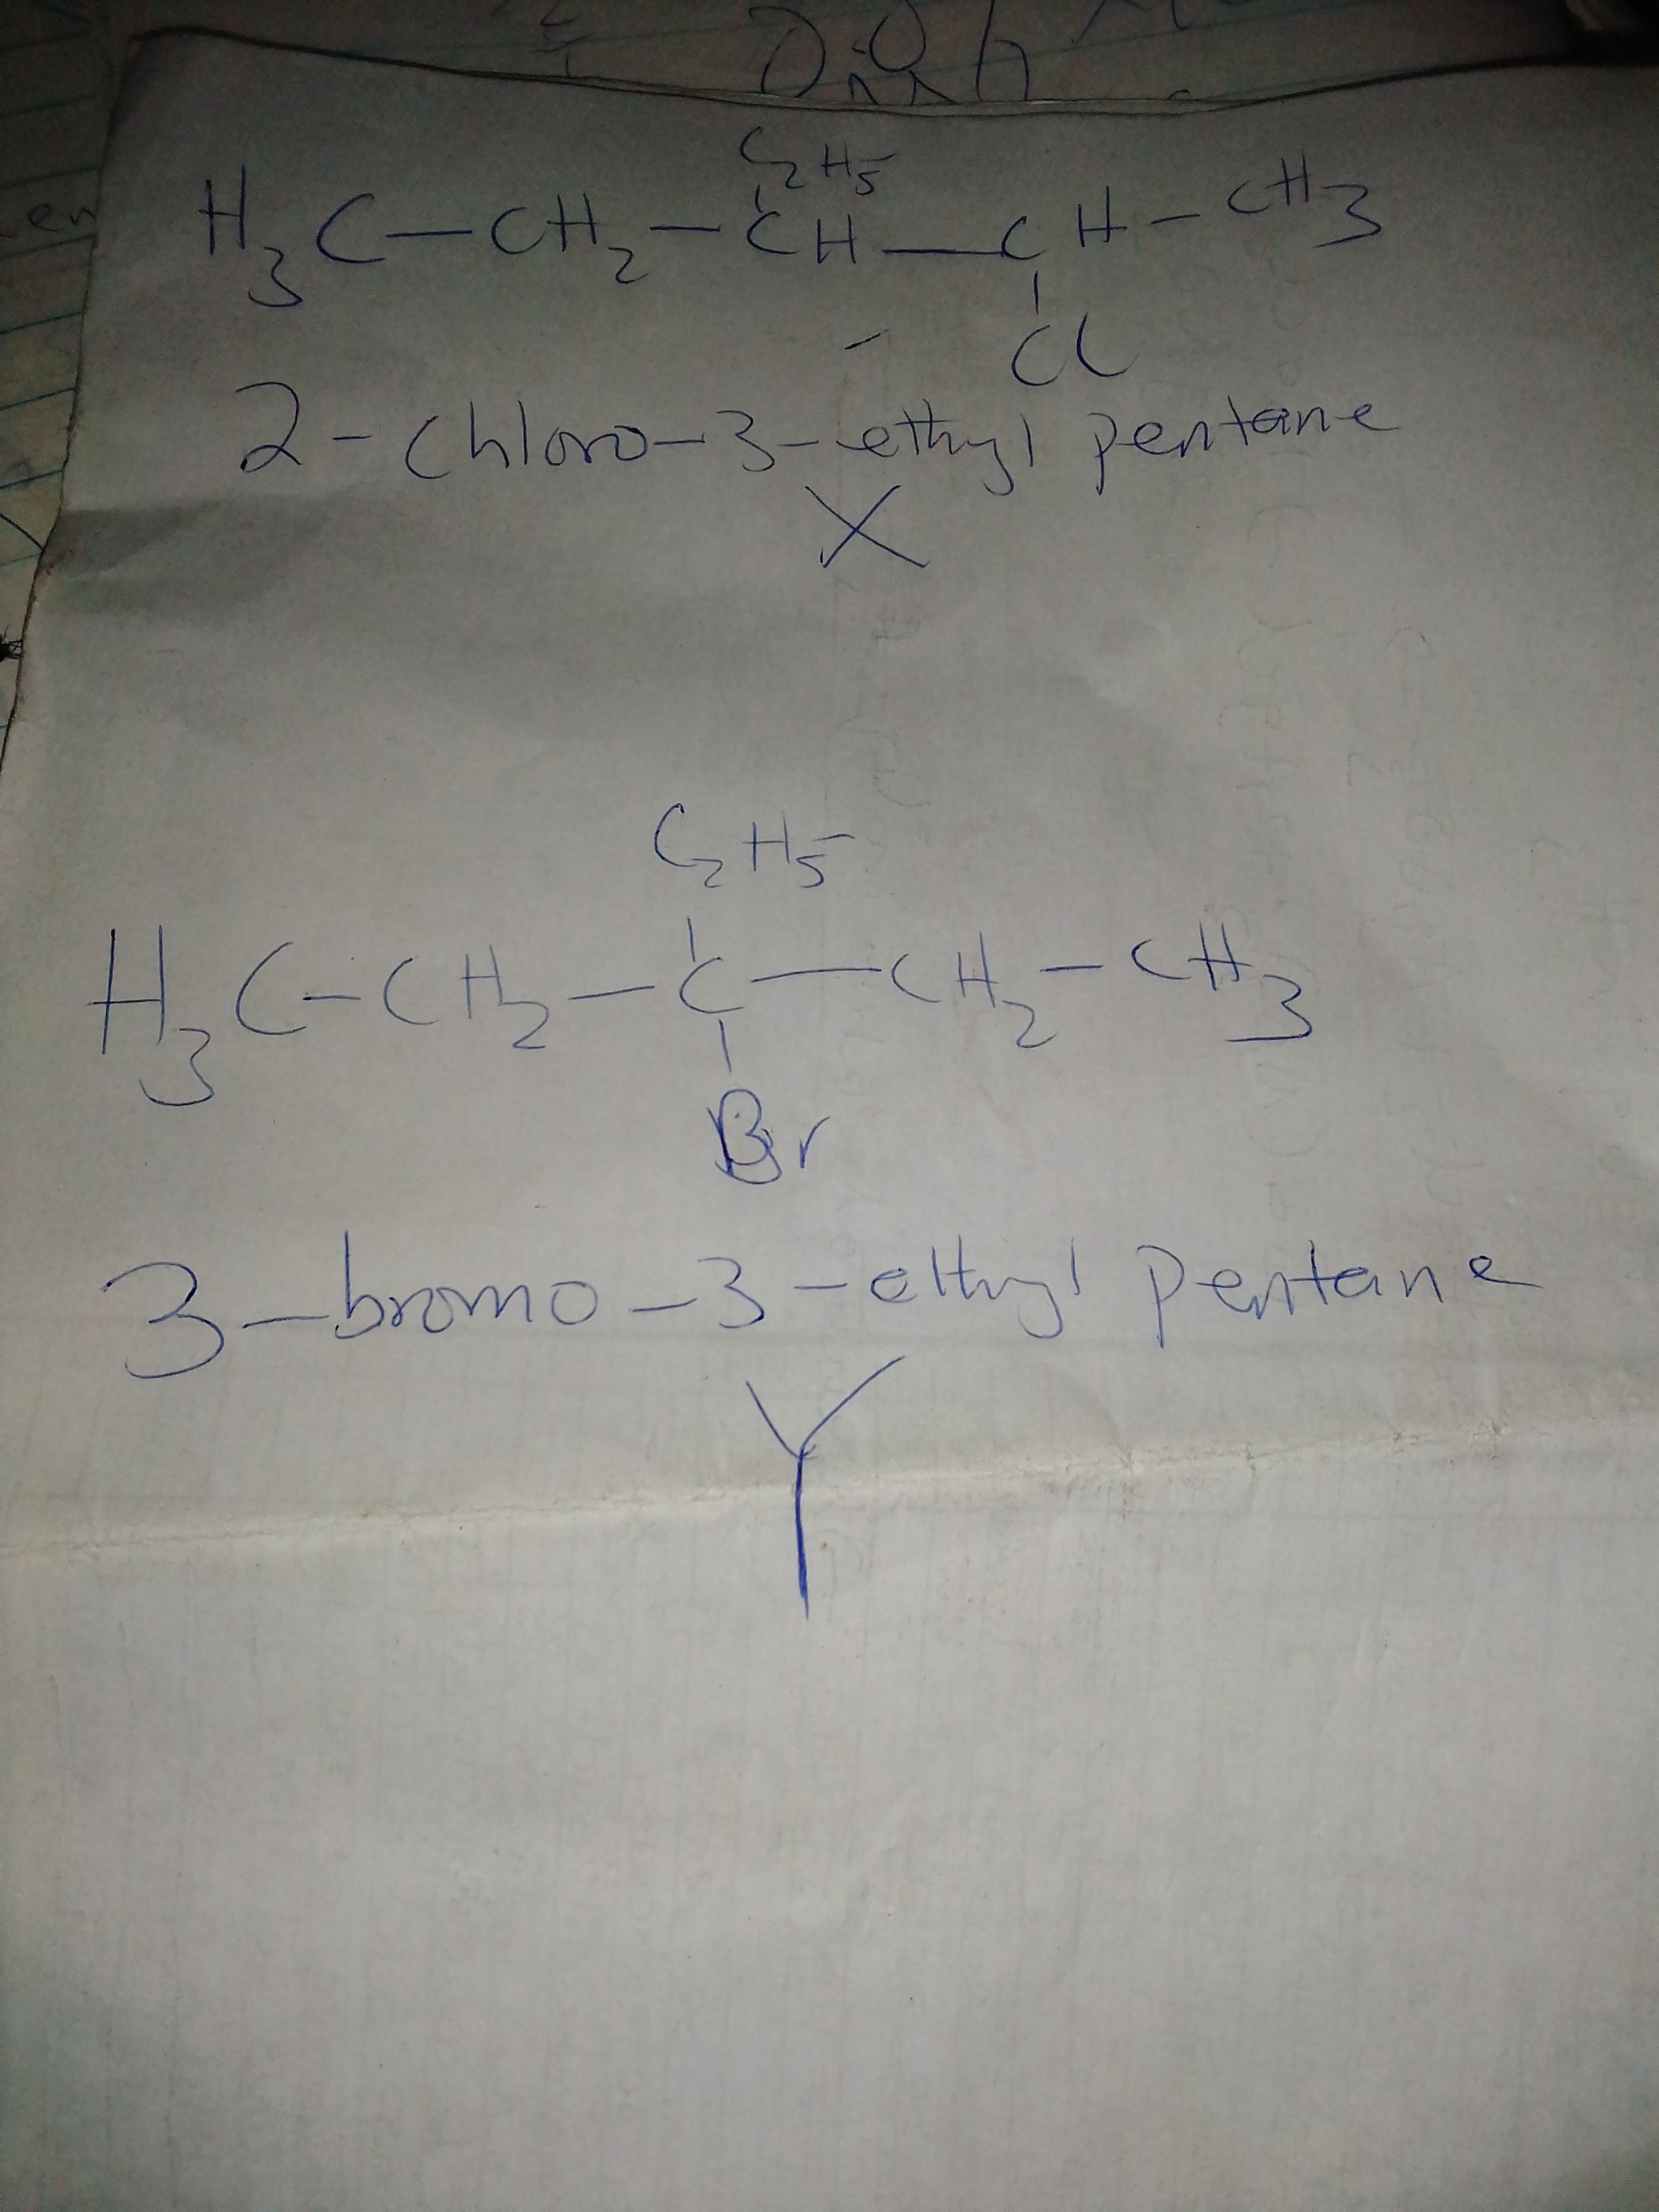 C2H5
H3C-CH2-CH-CH-CH3
Cl
2-chloro-3-ethyl pentane
X
C2H5
H3C-CH2-C-CH2-CH3
Br
3-bromo-3-ethyl pentane
Y